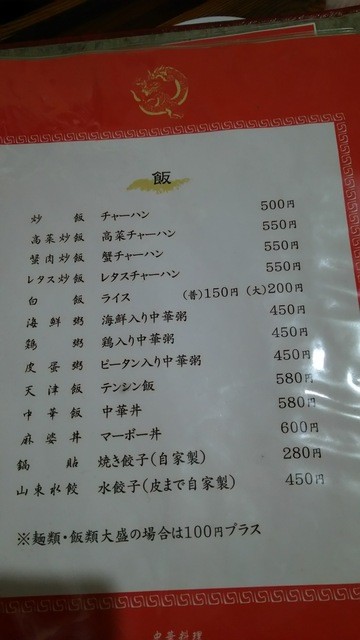 飯
炒飯 チャーハン 500円
高菜炒飯 高菜チャーハン 550円
蟹肉炒飯 蟹チャーハン 550円
レタス炒飯 レタスチャーハン 550円
白飯 ライス (普)150円 (大)200円
海鮮粥 海鮮入り中華粥 450円
鶏粥 鶏入り中華粥 450円
皮蛋粥 ピータン入り中華粥 450円
天津飯 テンシン飯 580円
中華飯 中華丼 580円
麻婆丼 マーボー丼 600円
鍋貼 焼き餃子(自家製) 280円
山東水餃 水餃子(皮まで自家製) 450円
※麺類・飯類大盛の場合は100円プラス
中華料理